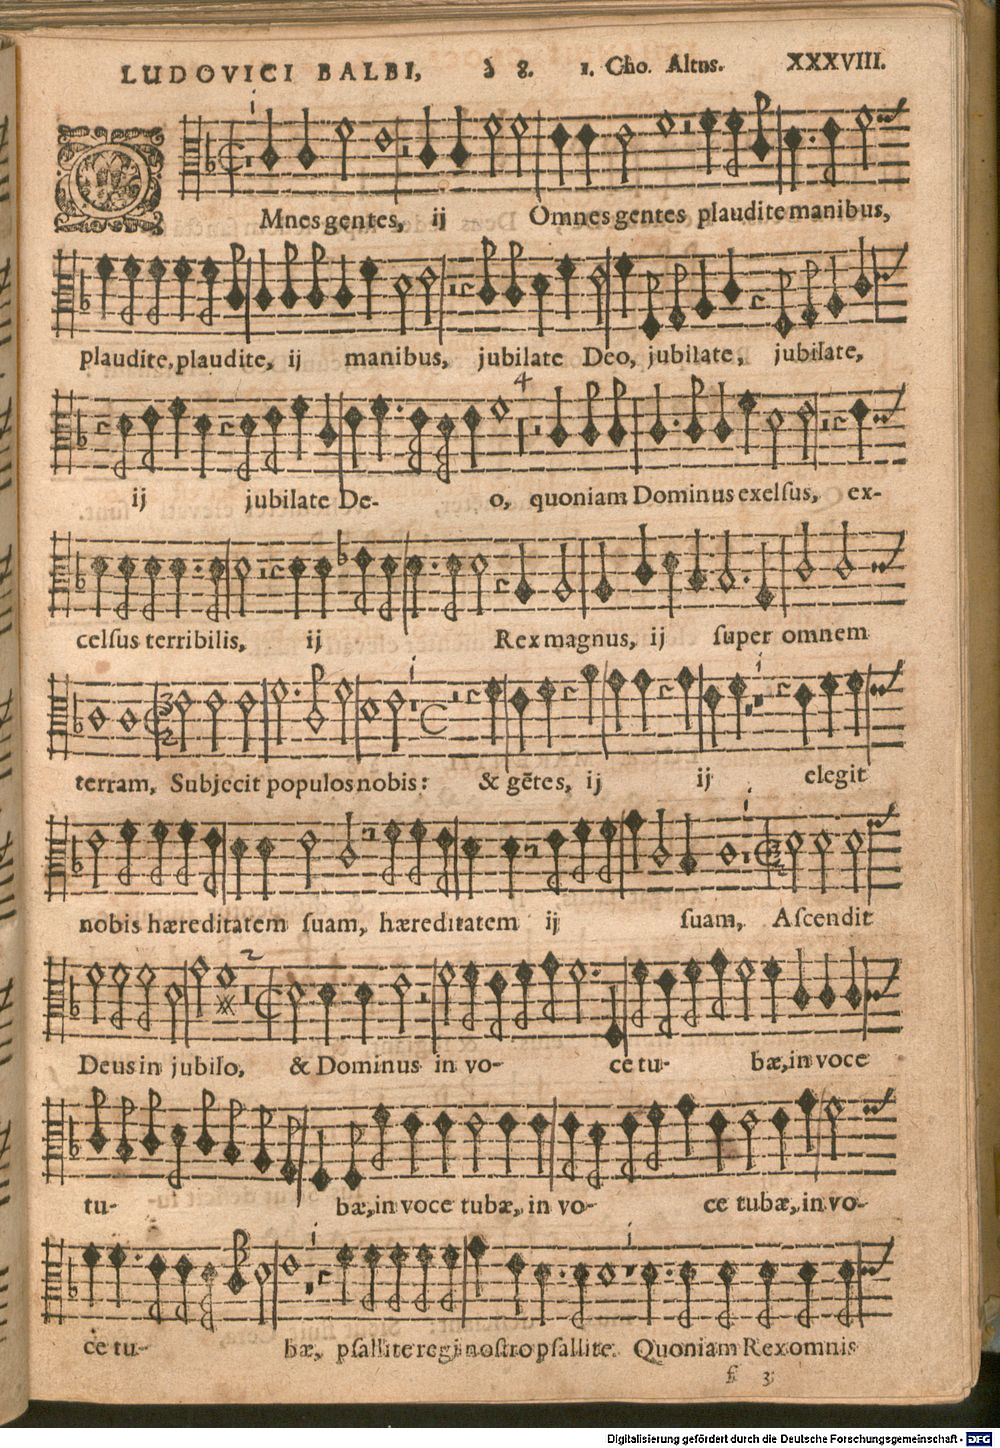 LUDOVICI BALBI, à 8. 1. Cho. Altus. XXXVIII.
OMnes gentes, ij Omnes gentes plaudite manibus,
plaudite, plaudite, ij manibus, jubilate Deo, jubilate, jubilate,
4
ij jubilate De- o, quoniam Dominus exelſus, ex-
celſus terribilis, ij Rex magnus, ij ſuper omnem
terram, Subjecit populos nobis: & gẽtes, ij ij elegit
nobis hæreditatem ſuam, hæreditatem ij ſuam, Aſcendit
2
Deus in jubilo, & Dominus in vo- ce tu- bæ, in voce
tu- bæ, in voce tubæ, in vo- ce tubæ, in vo-
ce tu- bæ, pſallite regi noſtro pſallite. Quoniam Rex omnis
3
Digitalisierung gefördert durch die Deutsche Forschungsgemeinschaft - DFG